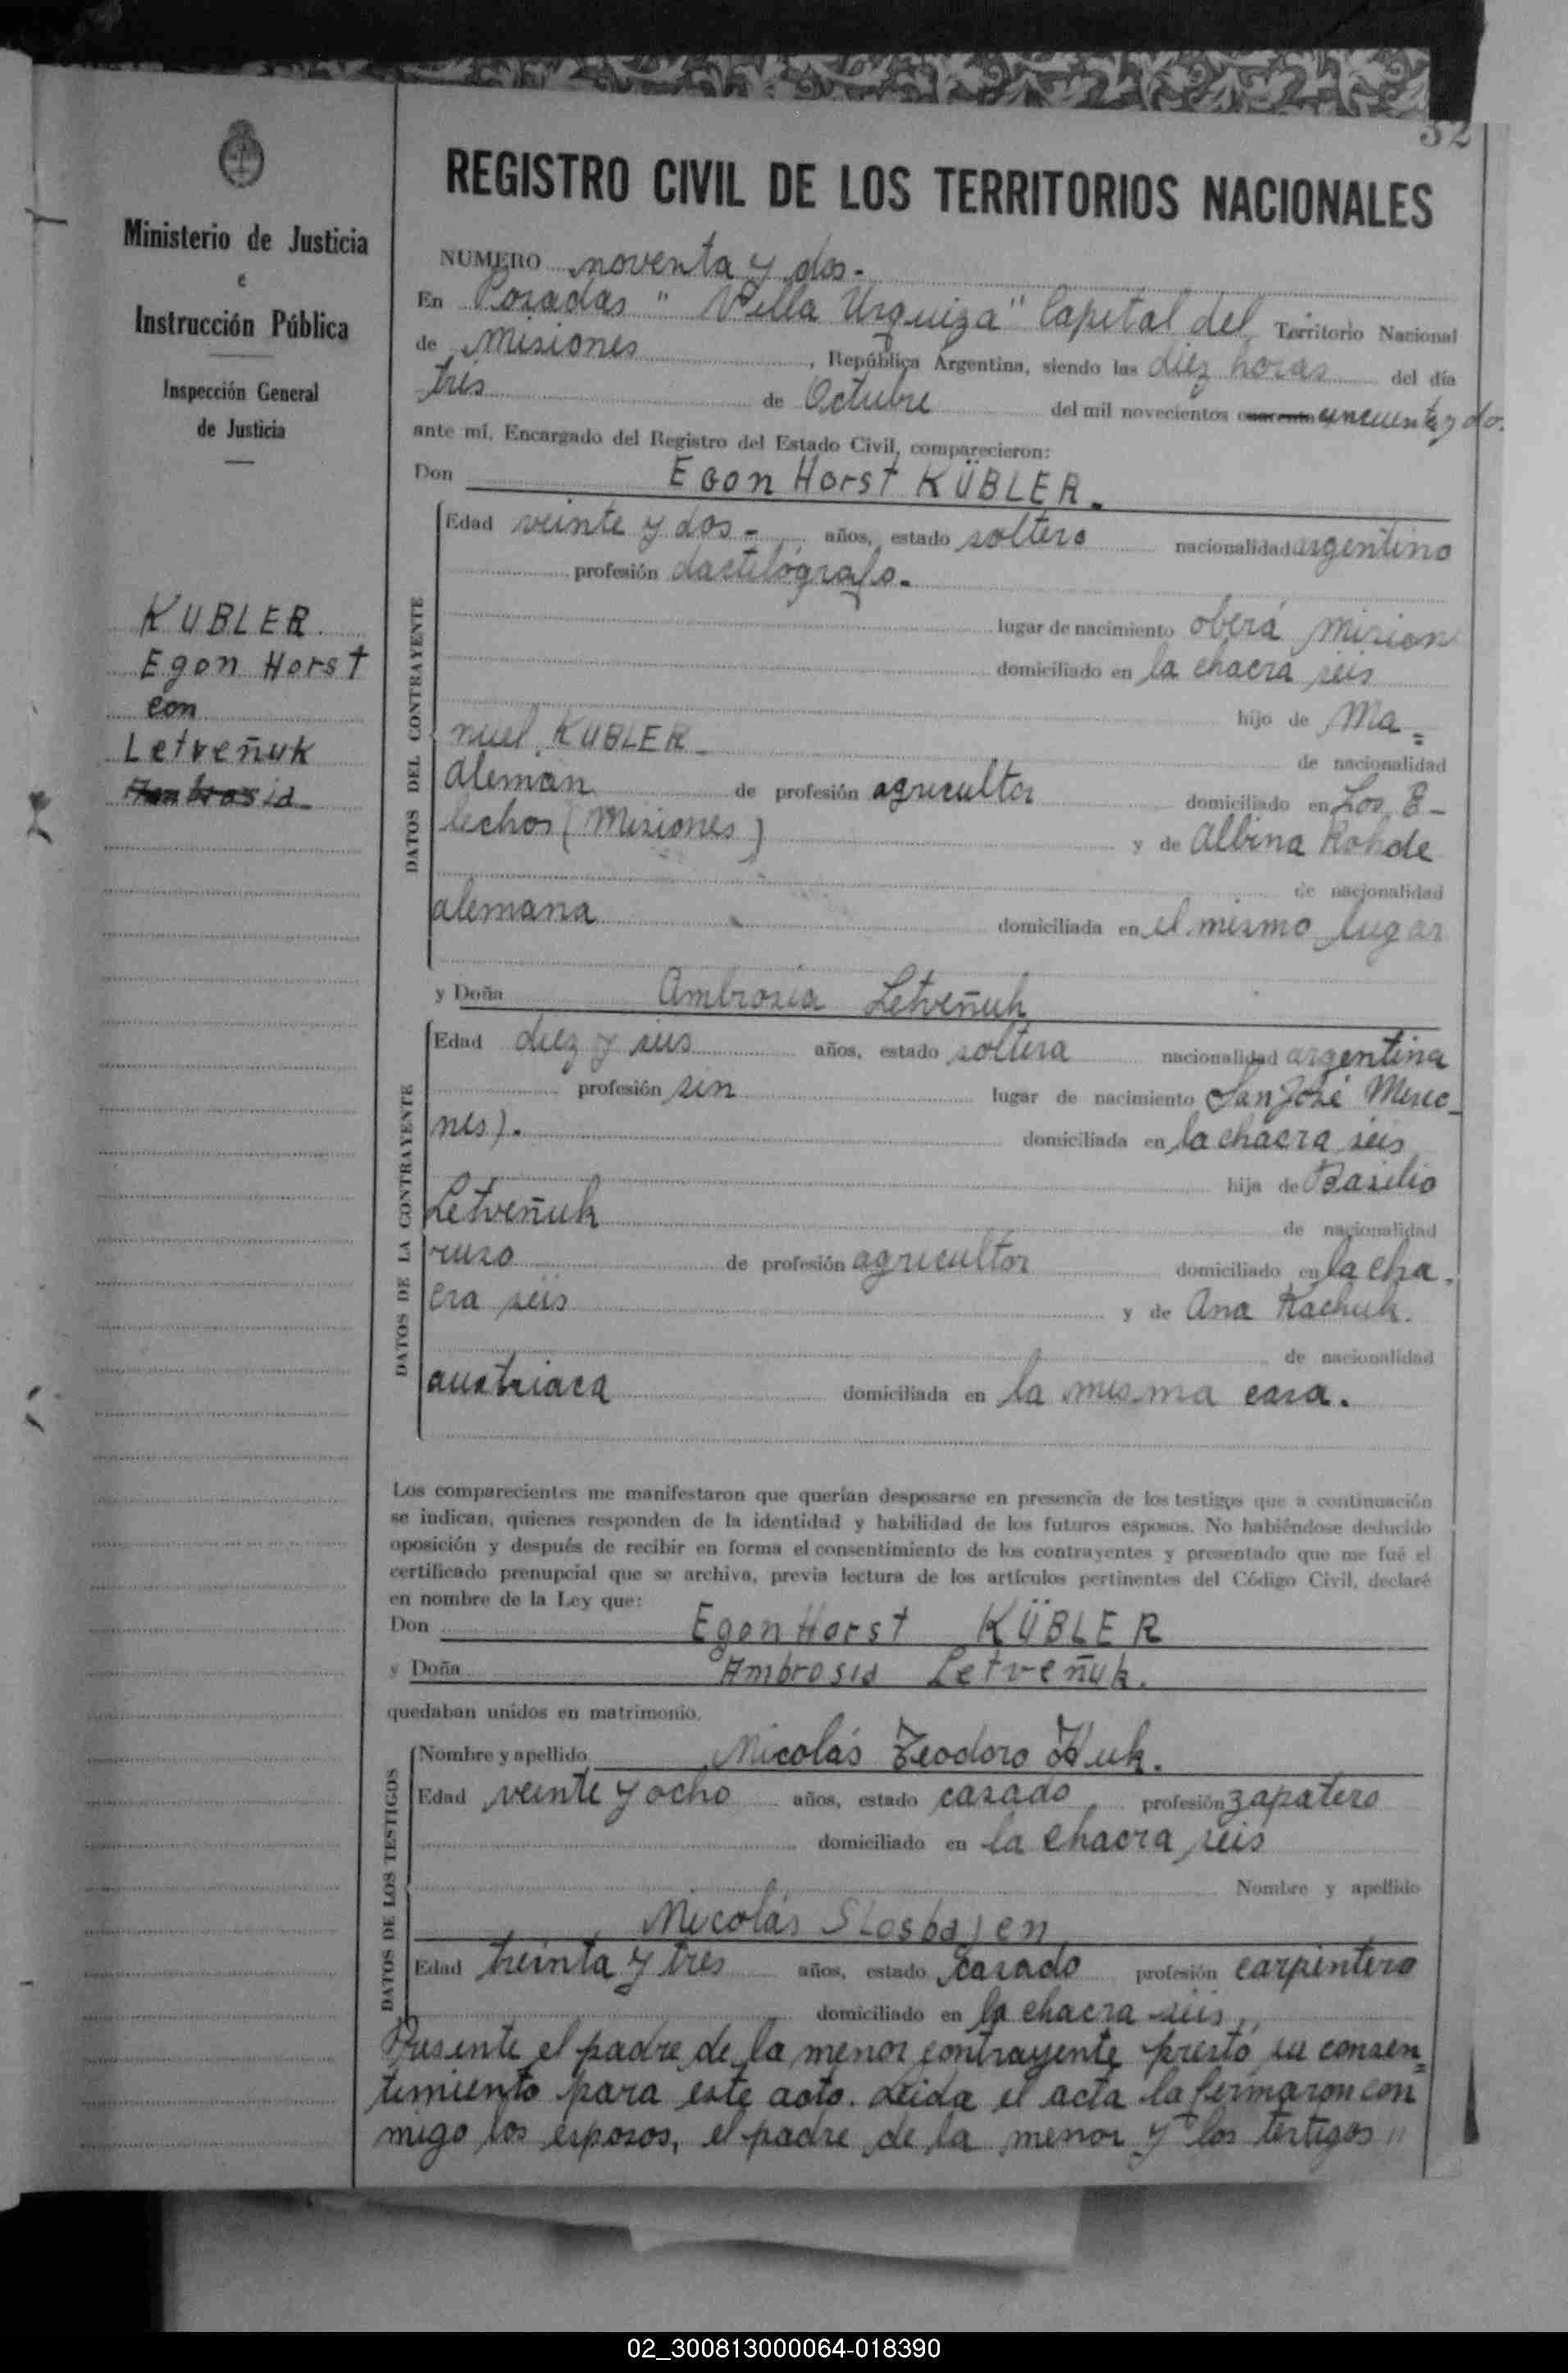 32
REGISTRO CIVIL DE LOS TERRITORIOS NACIONALES
Ministerio de Justicia
e
Instrucción Pública
Inspección General
de Justicia
KUBLER
Egon Horst
con
Letveñuk
Ambrosia
NUMERO noventa y dos.
En Posadas "Villa Urquiza" Capital del Territorio Nacional
de Misiones, República Argentina, siendo las diez horas del día
tres de Octubre del mil novecientos cuarenta cincuenta y do.
ante mí, Encargado del Registro del Estado Civil, comparecieron:
Don Egon Horst KÜBLER.
DATOS DEL CONTRAYENTE
Edad veinte y dos - años, estado soltero nacionalidad argentino
profesión dactilógrafo.
lugar de nacimiento oberá Mision
domiciliado en la chacra seis
hijo de Ma=
nuel KUBLER
de nacionalidad
aleman de profesión agricultor domiciliado en Los E-
lechos (Misiones) y de Albina Rohde
de nacionalidad
alemana domiciliada en el mismo lugar
y Doña Ambrosia Letveñuk
DATOS DE LA CONTRAYENTE
Edad diez y seis años, estado soltera nacionalidad argentina
profesión sin lugar de nacimiento San José Misio-
nes). domiciliada en la chacra seis
hija de Basilio
Letveñuk de nacionalidad
ruso de profesión agricultor domiciliado en la cha-
cra seis y de Ana Kachuk.
de nacionalidad
austriaca domiciliada en la misma casa.
Los comparecientes me manifestaron que querían desposarse en presencia de los testigos que a continuación
se indican, quienes responden de la identidad y habilidad de los futuros esposos. No habiéndose deducido
oposición y después de recibir en forma el consentimiento de los contrayentes y presentado que me fué el
certificado prenupcial que se archiva, previa lectura de los artículos pertinentes del Código Civil, declaré
en nombre de la Ley que:
Don Egon Horst KÜBLER
y Doña Ambrosia Letveñuk.
quedaban unidos en matrimonio.
DATOS DE LOS TESTIGOS
Nombre y apellido Nicolás Teodoro Huk.
Edad veinte y ocho años, estado casado profesión zapatero
domiciliado en la chacra seis
Nombre y apellido
Nicolás
Edad treinta y tres años, estado casado profesión carpintero
domiciliado en la chacra seis
Presente el padre de la menor contrayente prestó su consen=
timiento para este acto. Leida el acta la firmaron con
migo los esposos, el padre de la menor y los testigos "
02_300813000064-018390